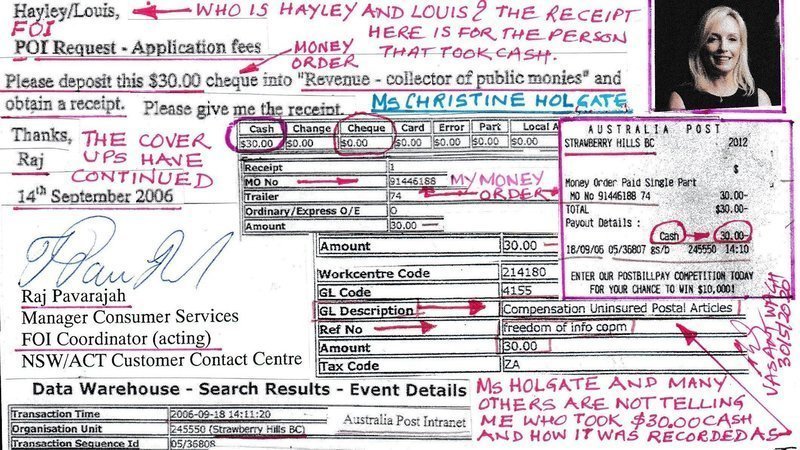 Hayley/Louis, ← WHO IS HAYLEY AND LOUIS? THE RECEIPT
FOI HERE IS FOR THE PERSON
POI Request - Application fees THAT TOOK CASH.
MONEY
ORDER
Please deposit this $30.00 cheque into "Revenue - collector of public monies" and
obtain a receipt. Please give me the receipt. MS CHRISTINE HOLGATE
Thanks, THE COVER
UPS HAVE
Raj CONTINUED
14th September 2006
Cash Change Cheque Card Error Part Local A
$30.00 $0.00 $0.00 $0.00 $0.00 $0.00 $0.00
Receipt 1
MO No 91446188 MY MONEY
Trailer 74 ORDER
Ordinary/Express O/E O
Amount 30.00
AUSTRALIA POST
STRAWBERRY HILLS BC 2012
$
Money Order Paid Single Part
MO No 91446188 74 30.00-
TOTAL $30.00-
Payout Details :
Cash 30.00-
18/09/06 05/36807 gs/b 245550 14:10
ENTER OUR POSTBILLPAY COMPETITION TODAY
FOR YOUR CHANCE TO WIN $10,000!
Raj Pavarajah
Manager Consumer Services
FOI Coordinator (acting)
NSW/ACT Customer Contact Centre
Amount 30.00
Workcentre Code 214180
GL Code 4155
GL Description Compensation Uninsured Postal Articles
Ref No freedom of info copm
Amount 30.00
Tax Code ZA
VASANT WAGH
30/5/2020
Data Warehouse - Search Results - Event Details
Transaction Time 2006-09-18 14:11:20
Organisation Unit 245550 (Strawberry Hills BC)
Transaction Sequence Id 05/36808
Australia Post Intranet
MS HOLGATE AND MANY
OTHERS ARE NOT TELLING
ME WHO TOOK $30.00 CASH
AND HOW IT WAS RECORDED AS